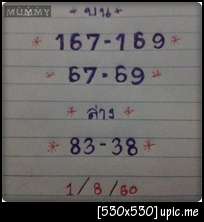 MUMMY
* บน *
* 167-169 *
67-69
* ล่าง *
* 83-38 *
1/8/60
[530x530] upic.me